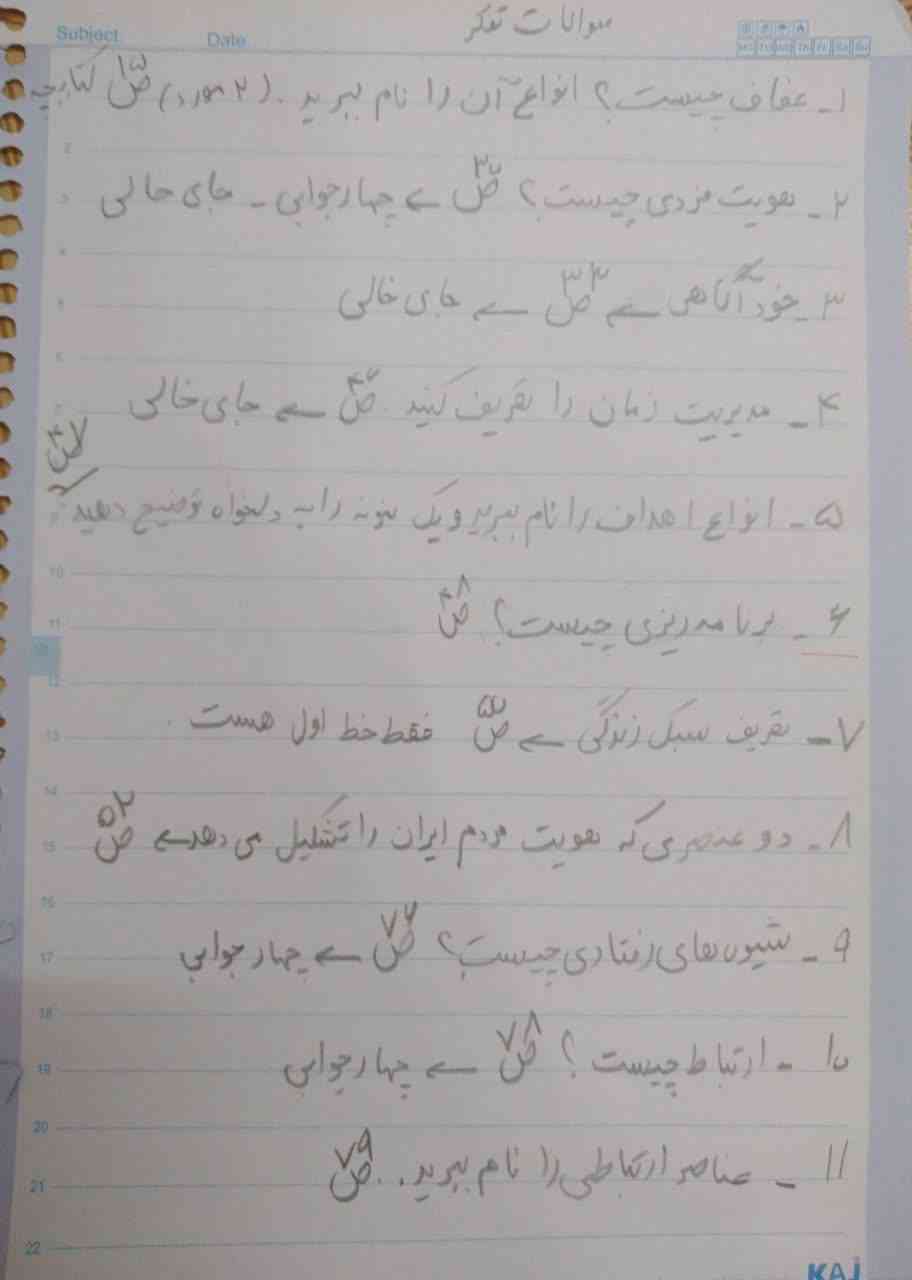 سوالات تفکر
Subject
Date
۱- عفاف چیست؟ انواع آن را نام ببرید. (۲ مورد) ص۱۵ کتابچه
۲- هویت فردی چیست؟ ص۳۲ ← چهارجوابی - جای خالی
۳- خودآگاهی ← ص۳۳ ← جای خالی
۴- مدیریت زمان را تعریف کنید. ص۴۷ ← جای خالی
۵- انواع اهداف را نام ببرید و یک نمونه را به دلخواه توضیح دهید ص۴۷
۶- برنامه ریزی چیست؟ ص۴۸
۷- تعریف سبک زندگی ← ص۵۵ فقط خط اول هست.
۸- دو عنصری که هویت مردم ایران را تشکیل می دهد ← ص۵۲
۹- شیوه های رفتاری چیست؟ ص۷۲ ← چهار جوابی
۱۰- ارتباط چیست؟ ص۷۸ ← چهارجوابی
۱۱- عناصر ارتباطی را نام ببرید.. ص۷۹
KAJ